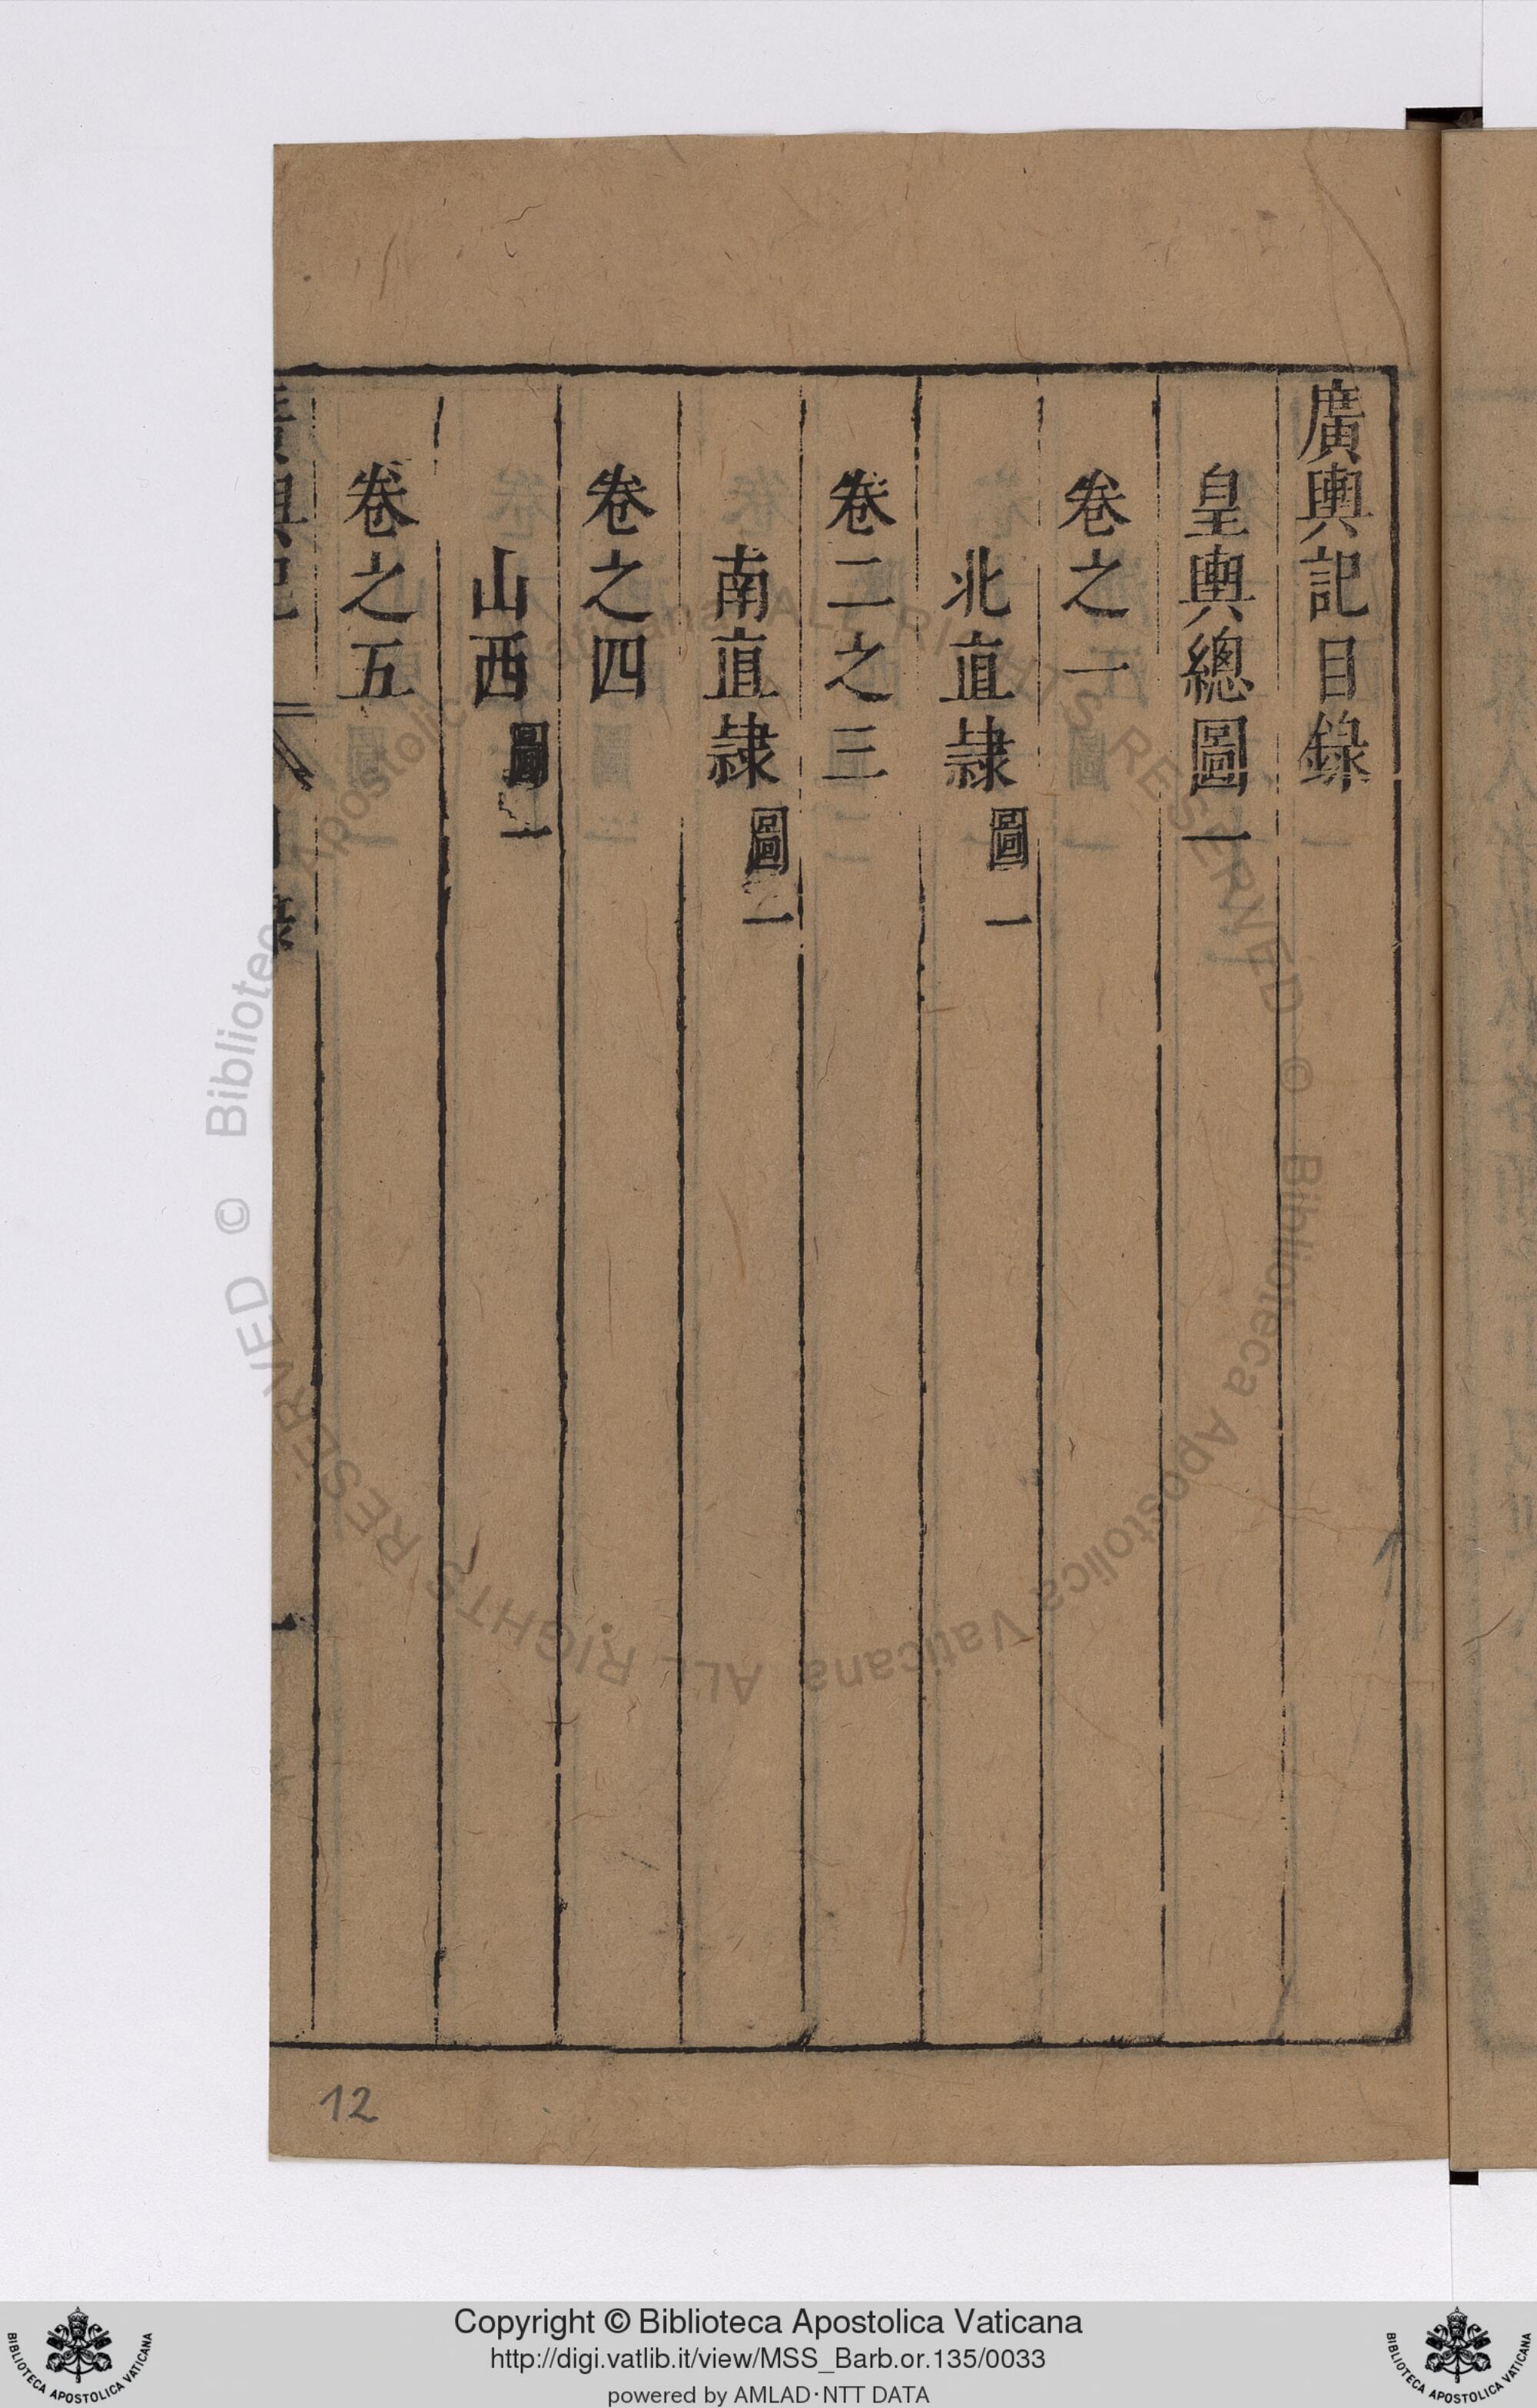 廣輿記目錄
皇輿總圖一
卷之一
北直隷圖一
卷二之三
南直隷圖一
卷之四
山西圖一
卷之五
12
© Biblioteca Apostolica Vaticana ALL RIGHTS RESERVED © Biblioteca Apostolica Vaticana ALL RIGHTS RESERVED
BIBLIOTECA APOSTOLICA VATICANA
Copyright © Biblioteca Apostolica Vaticana
http://digi.vatlib.it/view/MSS_Barb.or.135/0033
powered by AMLAD·NTT DATA
BIBLIOTECA APOSTOLICA VATICANA